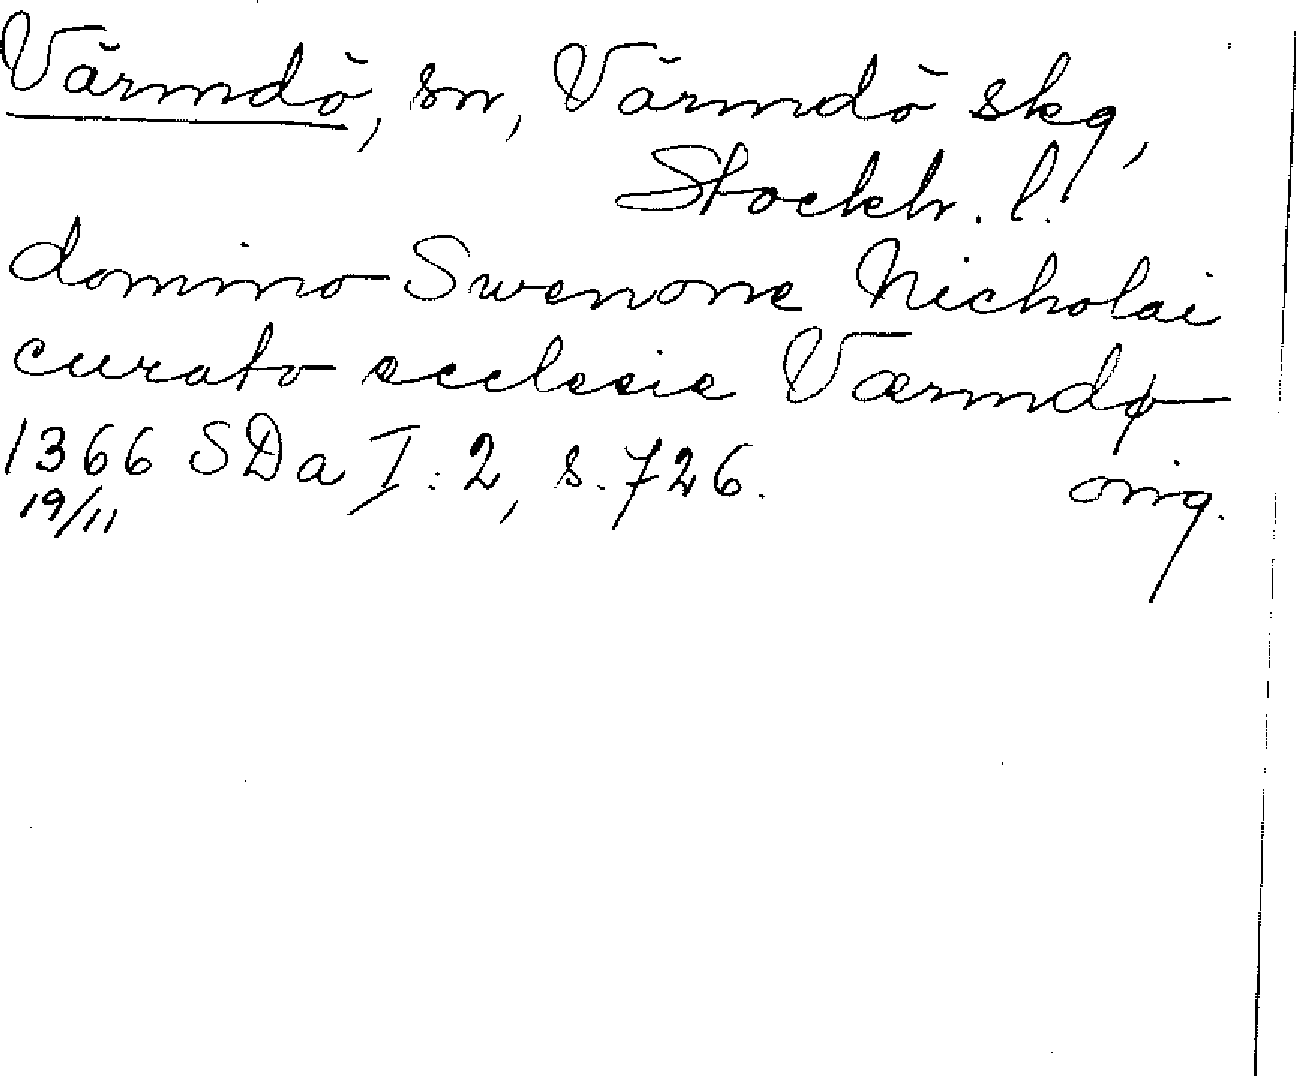 Värmdö, sn, Värmdö skg,
Stockh. l.
domino Swenone Nicholai
curato ecclesie Værmdø
1366 SDa I:2, s. 726. orig.
19/11